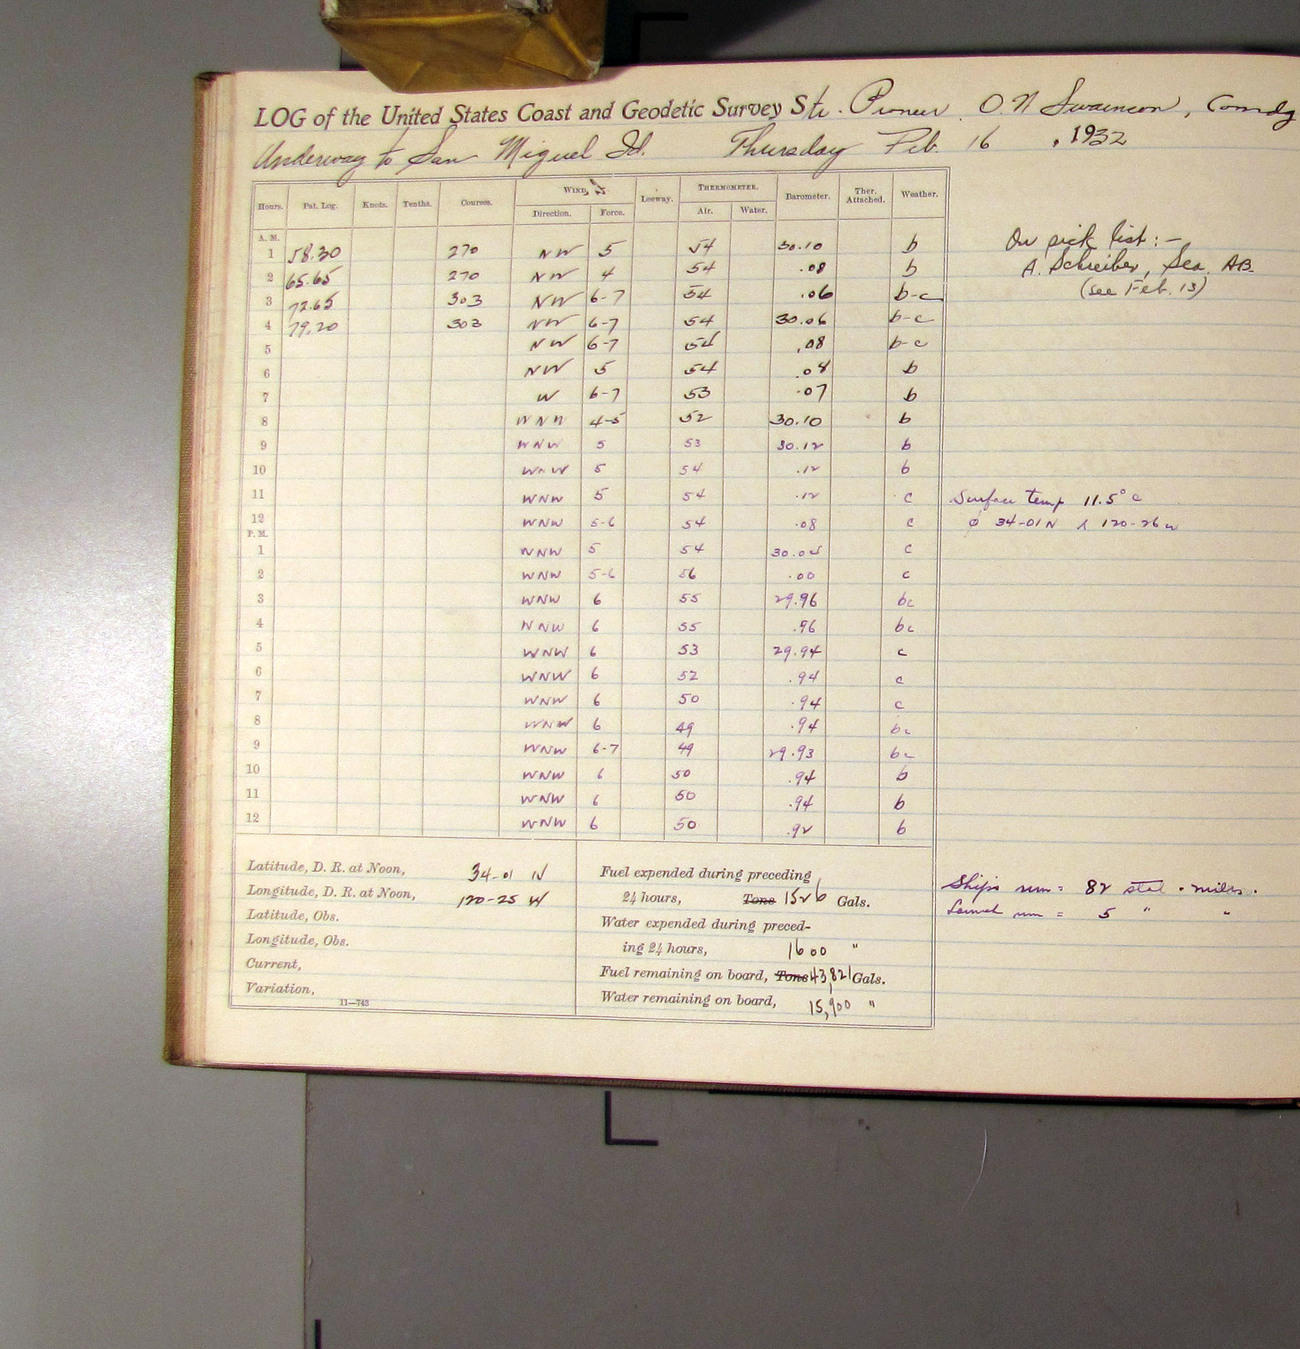 LOG of the United States Coast and Geodetic Survey Str. Pioneer. O. W. Swainson, Comdg
Underway to San Miguel Id. Thursday Feb. 16, 1932
Hours. Pat. Log. Knots. Tenths. Courses. WIND, Leeway. THERMOMETER. Barometer. Ther. Attached. Weather.
Direction. Force. Air. Water.
A. M.
1 58.30 270 NW 5 54 30.10 b
2 65.65 270 NW 4 54 .08 b
3 72.65 303 NW 6-7 54 .06 b-c
4 79.20 303 NW 6-7 54 30.06 b-c
5 NW 6-7 54 .08 b-c
6 NW 5 54 .08 b
7 W 6-7 53 .07 b
8 WNW 4-5 52 30.10 b
9 WNW 5 53 30.12 b
10 WNW 5 54 .12 b
11 WNW 5 54 .12 c
12 WNW 5-6 54 .08 c
P. M.
1 WNW 5 54 30.04 c
2 WNW 5-6 56 .00 c
3 WNW 6 55 29.96 bc
4 WNW 6 55 .96 bc
5 WNW 6 53 29.94 c
6 WNW 6 52 .94 c
7 WNW 6 50 .94 c
8 WNW 6 49 .94 bc
9 WNW 6-7 49 29.93 bc
10 WNW 6 50 .94 b
11 WNW 6 50 .94 b
12 WNW 6 50 .92 b
On sick list:-
A. Schreiber, Sea. AB.
(see Feb. 13)
Surface temp 11.5° c
φ 34-01 N λ 120-26 W
Latitude, D. R. at Noon, 34-01 N
Longitude, D. R. at Noon, 120-25 W
Latitude, Obs.
Longitude, Obs.
Current,
Variation,
11—743
Fuel expended during preceding
24 hours, Tons 1526 Gals.
Water expended during preced-
ing 24 hours, 1600 "
Fuel remaining on board, Tons 43,821 Gals.
Water remaining on board, 15,900 "
Ships run = 82 stat. miles.
run = 5 " "